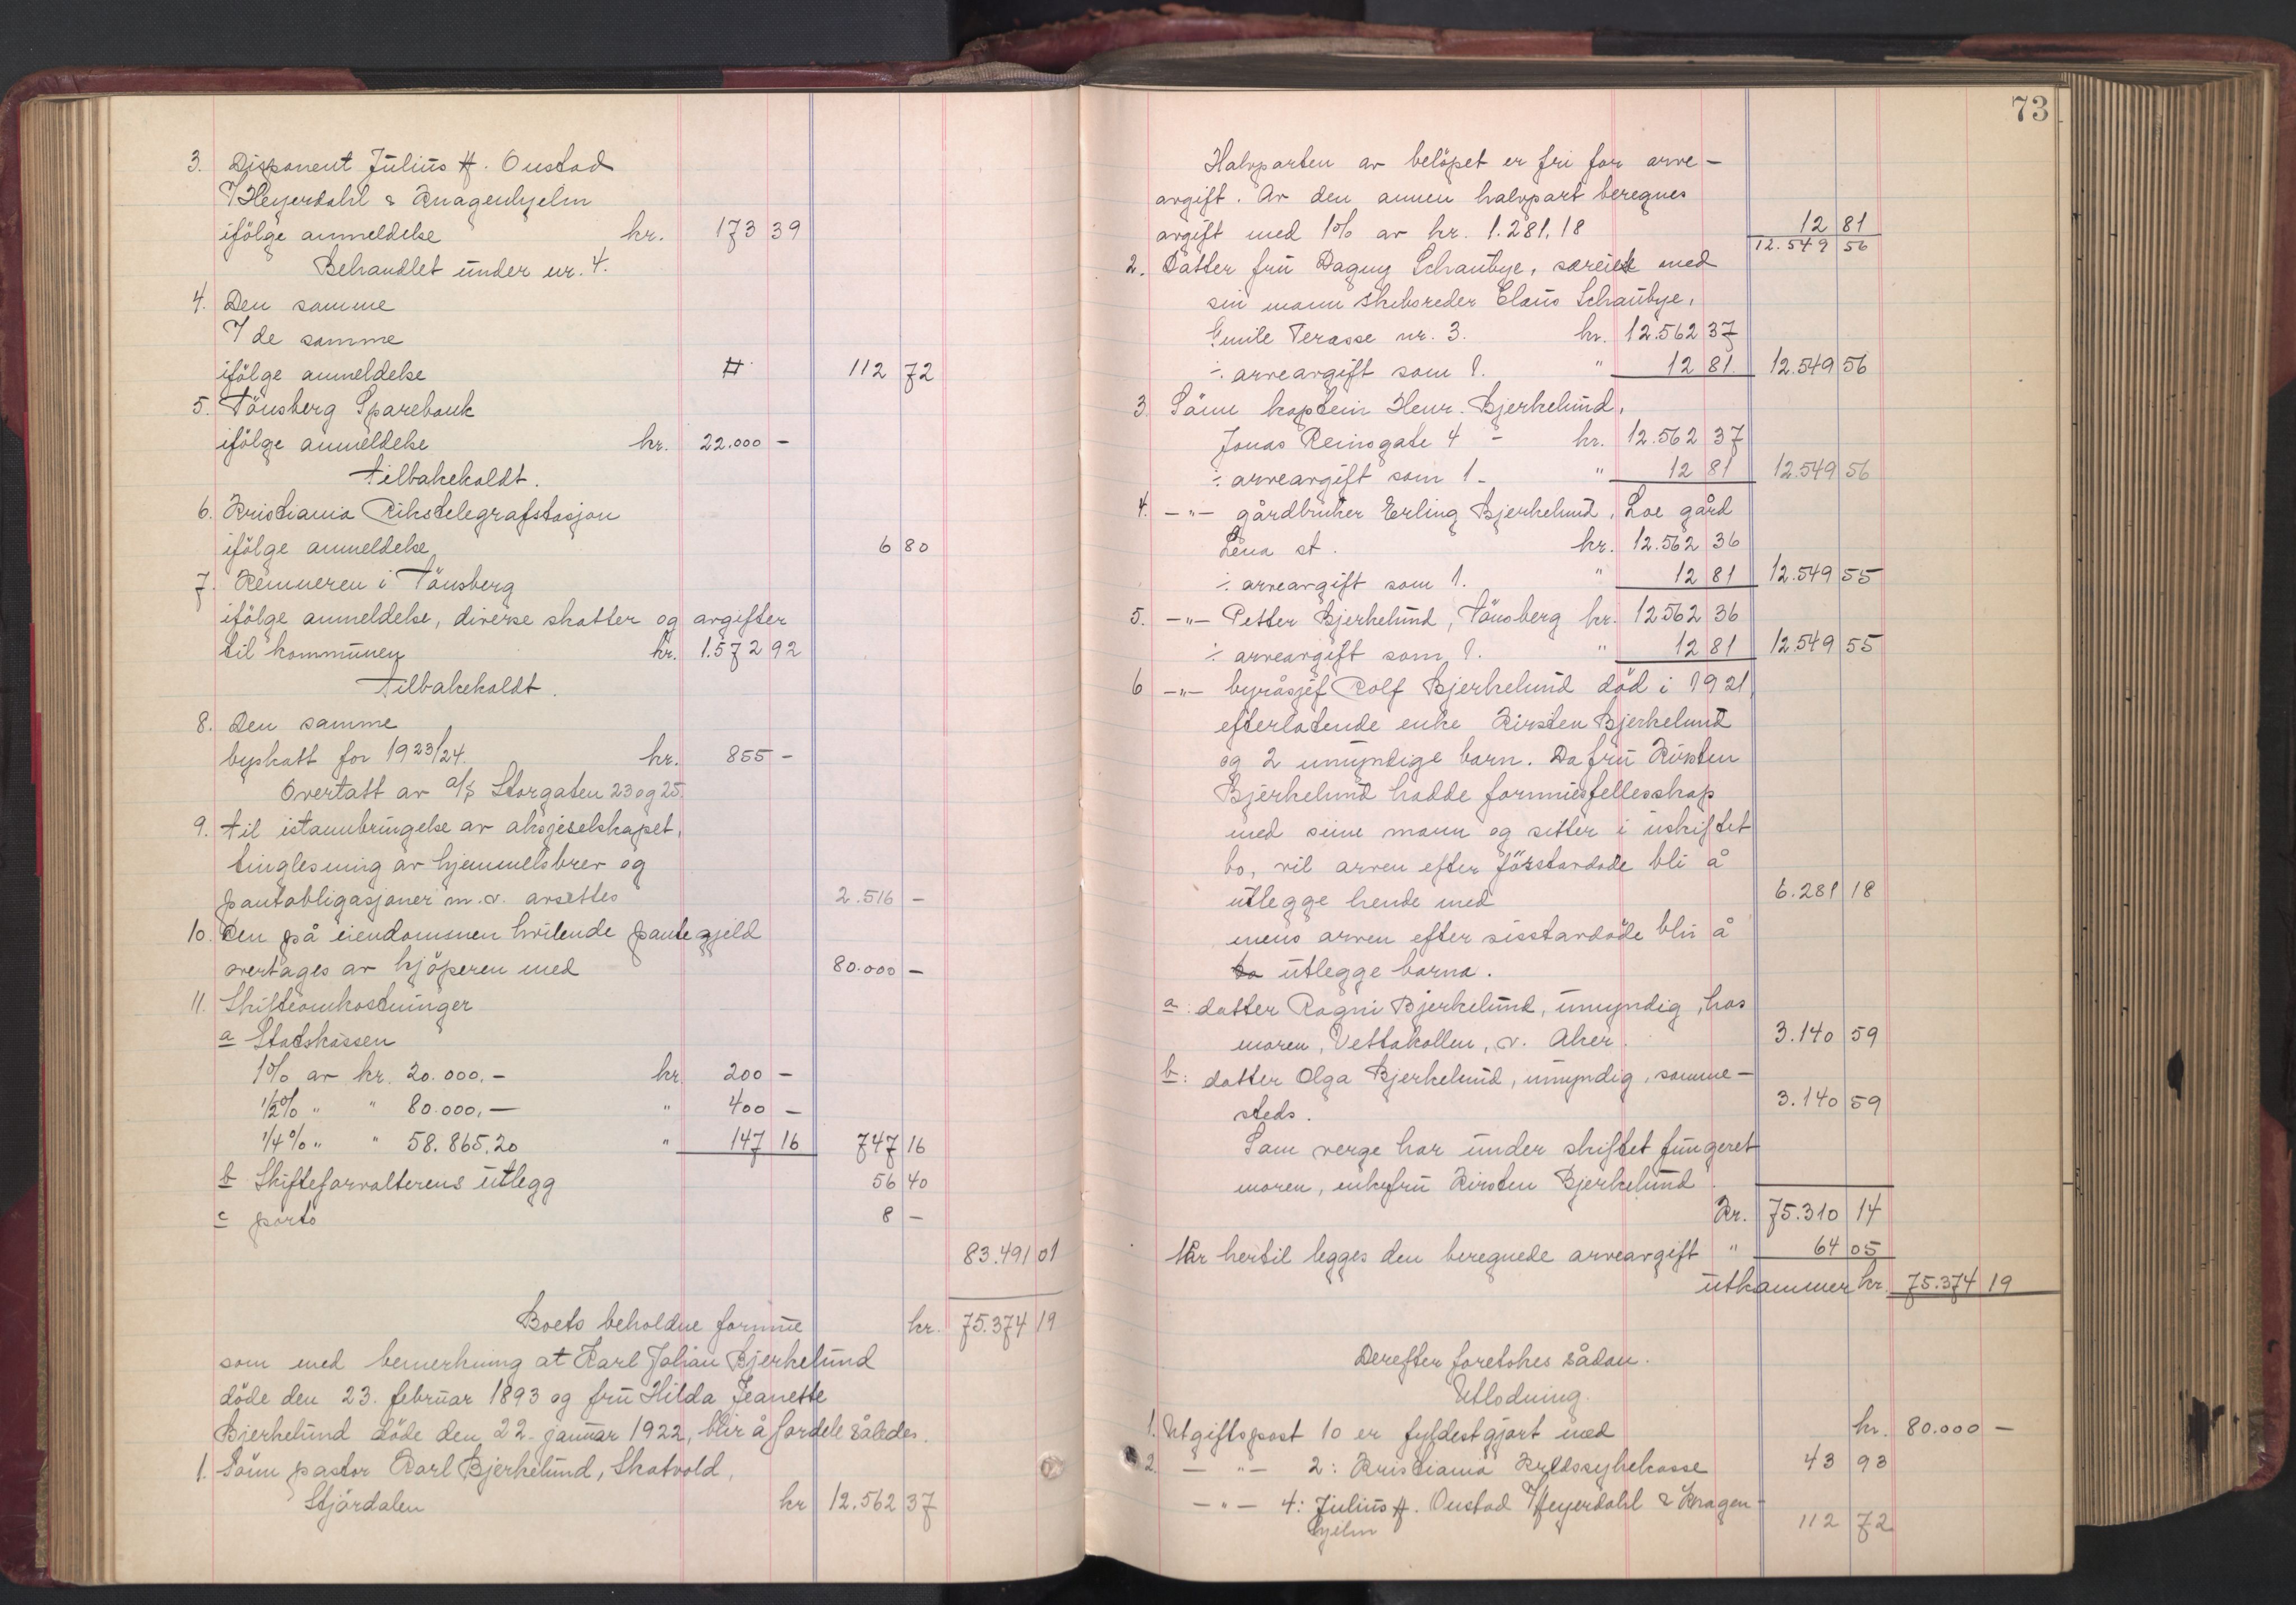 3. Disponent Julius H. Oustad
v/ Heyerdahl & Knagenhjelm
ifölge anmeldelse kr. 173 39
Behandlet under nr. 4.
4. Den samme
v/ de samme
ifölge anmeldelse # 112 72
5. Tönsberg Sparebank
ifölge anmeldelse kr. 22.000 -
tilbakeholdt.
6. Kristiania Rikstelegrafstasjon
ifölge anmeldelse 6 80
7. Kemneren i Tönsberg
ifölge anmeldelse, diverse skatter og avgifter
til kommunen kr. 1.572 92
tilbakeholdt.
8. Den samme
byskatt for 1923/24. kr. 855 -
Overtatt av A/S Storgaten 23 og 25.
9. til istannbringelse av aksjeselskapet,
tinglesning av hjemmelsbrev og
pantobligasjoner m.v. avsettes 2.516 -
10. Den på eiendommen hvilende pantegjeld
overtages av kjöperen med 80.000 -
11. Skifteomkostninger
a Statskassen
1% av kr. 20.000.- kr. 200 -
1/2% " " 80.000,- " 400 -
1/4% " " 58.865,20 " 147 16 747 16
b Skifteforvalterens utlegg 56 40
c porto 8 -
83.491 01
Boets beholdne formue kr. 75.374 19
som med bemerkning at Karl Johan Bjerkelund
döde den 23. februar 1893 og fru Hilda Jeanette
Bjerkelund döde den 22. januar 1922, blir å fordele således.
1. Sönn pastor Karl Bjerkelund, Skatvold,
Stjördalen kr 12.562 37
73
Halvparten av belöpet er fri for arve-
avgift. Av den annen halvpart beregnes
avgift med 1% av kr. 1.281,18 12 81
12.549 56
2. Datter fru Dagny Schaubye, særeiet med
sin mann skibsreder Claus Schaubye,
Gimle Terasse nr. 3. kr. 12.562 37
÷ arveavgift som 1. " 12 81. 12.549 56
3. Sönn kaptein Henr. Bjerkelund,
Jonas Reinsgate 4 - kr. 12.562 37
÷ arveavgift som 1 - " 12 81 12.549 56
4. -"- gårdbruker Erling Bjerkelund, Loe gård
Lena st. kr. 12.562 36
÷ arveavgift som 1. " 12 81 12.549 55
5. -"- Petter Bjerkelund, Tönsberg kr. 12562 36
÷ arveavgift som 1. " 12 81 12.549 55
6 -"- byråsjef Rolf Bjerkelund död i 1921,
efterlatende enke Kirsten Bjerkelund
og 2 umyndige barn. Da fru Kirsten
Bjerkelund hadde formuesfellesskap
med sinne mann og sitter i uskiftet
bo, vil arven efter förstavdöde bli å
utlegge hende med 6.281 18
mens arven efter sisstavdöde blir å
utlegge barna.
a: datter Ragni Bjerkelund, umyndig, hos
moren, Vettakollen, v. Aker. 3.140 59
b: datter Olga Bjerkelund, umyndig, samme-
steds. 3.140 59
Som verge har under skiftet fungeret
moren, enkefru Kirsten Bjerkelund.
Kr. 75.310 14
Når hertil legges den beregnede arveavgift " 64 05
utkommer kr. 75.374 19
Derefter foretokes sådan.
Utlodning.
1. Utgiftspost 10 er fyldestgjort med kr. 80.000 -
2. -"- 2: Kristiania Kredssykekasse 43 93
-"- 4: Julius H. Oustad v/ Heyerdahl & Knagen-
hjelm 112 72